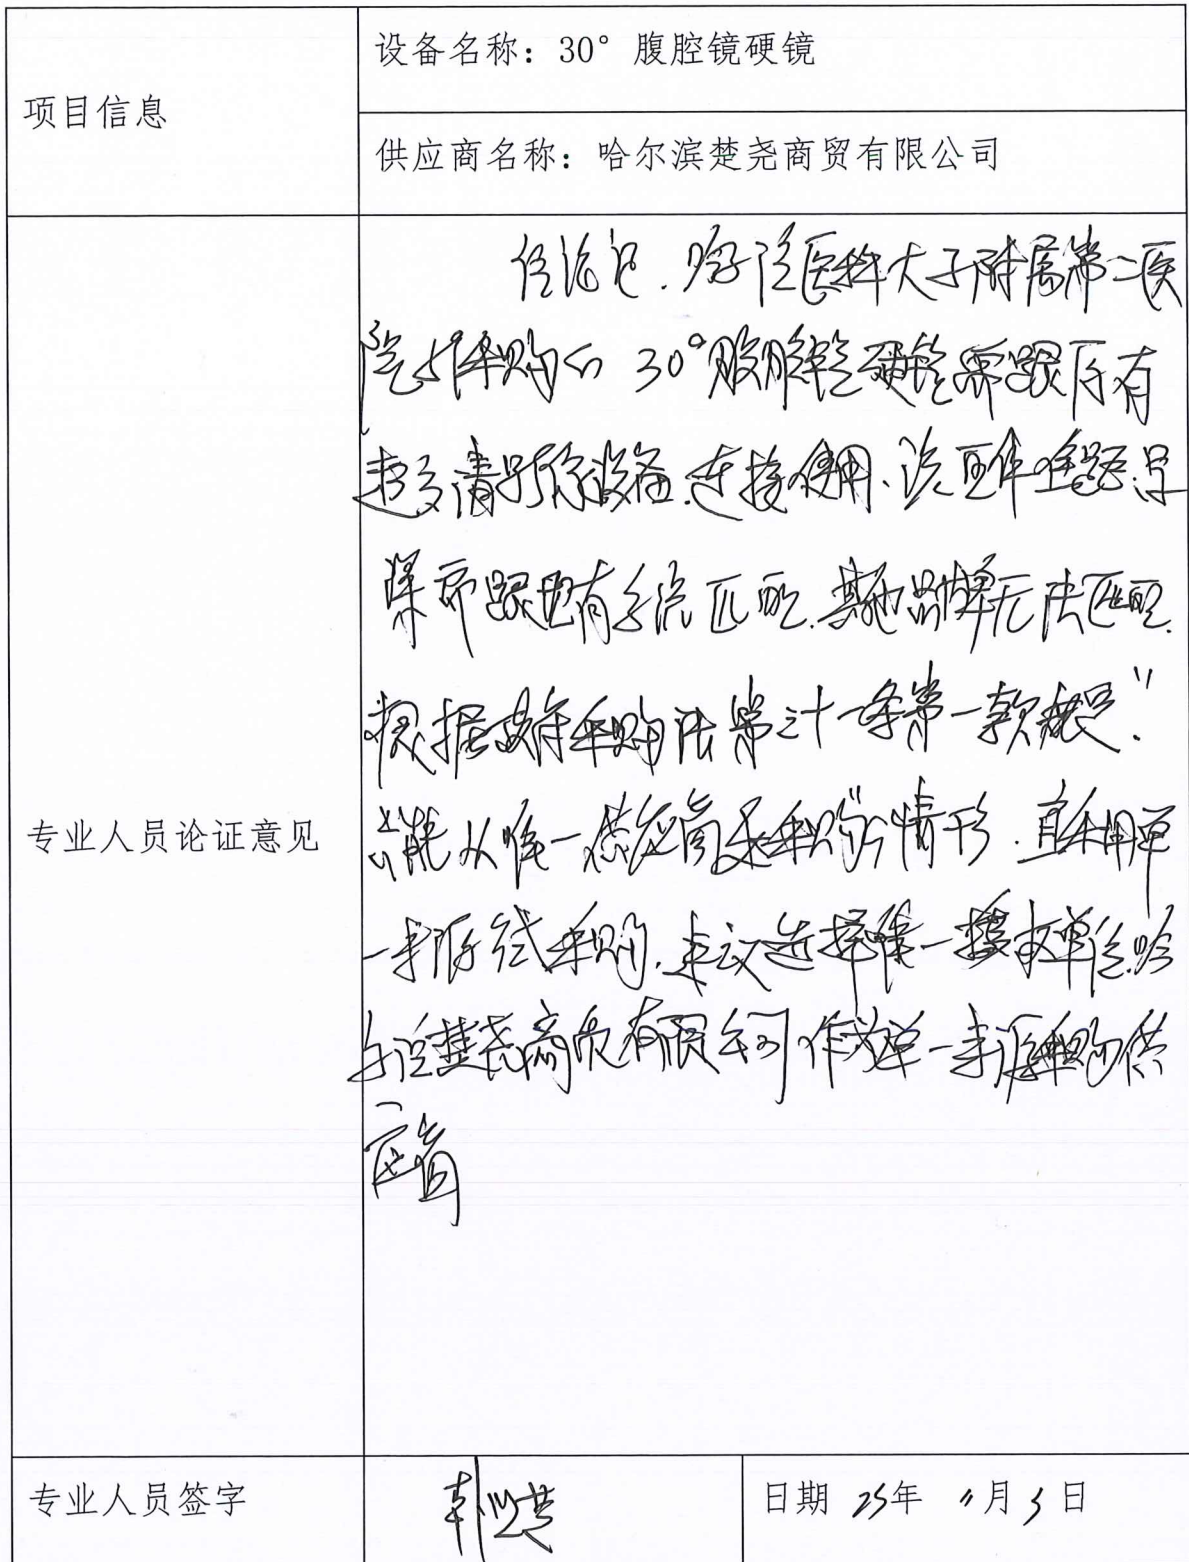 设备名称：30° 腹腔镜硬镜
项目信息
供应商名称：哈尔滨楚尧商贸有限公司
经论证，哈尔滨医科大学附属第二医
院拟采购的 30°腹腔镜硬镜需跟原有
超高清影像设备连接使用、该配件
需跟现有系统匹配，其他品牌无法匹配，
根据政府采购法第三十一条第一款规定"
只能从唯一供应商处采购"的情形，宜采用单
一来源方式采购，建议选择唯一授权单位哈
尔滨楚尧商贸有限公司作为单一来源采购供
应商
专业人员论证意见
专业人员签字
日期 25年 11月3日